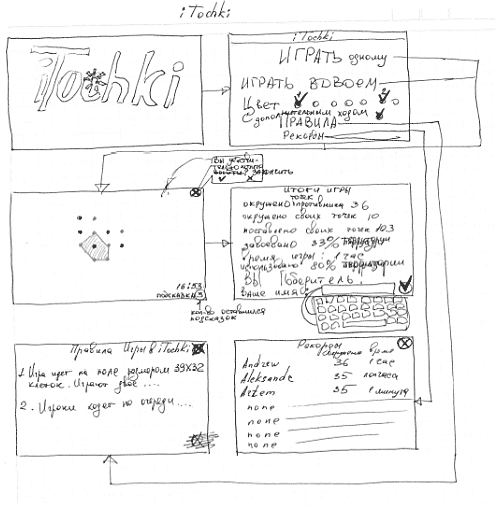 iTochki
iTochki
iTochki
ИГРАТЬ одному
ИГРАТЬ ВДВОЕМ
Цвет
С дополнительным ходом
ПРАВИЛА
Рекорды
Вы действительно хотите
закончить
16:53
подсказка
кол-во оставшихся
подсказок
ИТОГИ ИГРЫ
точек
окружено противника 36
окружено своих точек 10
поставлено своих точек 103
завоевано 33% территории
время игры: 1 час
использовано 80% территории
ВЫ Победитель,
ваше имя:
Правила Игры в iTochki
1. Игра идет на поле размером 39X32
клеток. Играют двое ....
2. Игроки ходят по очереди....
Рекорды
окружено время
Andrew 36 1 час
Aleksandr 35 полчаса
Artem 35 1 минута
none
none
none
none